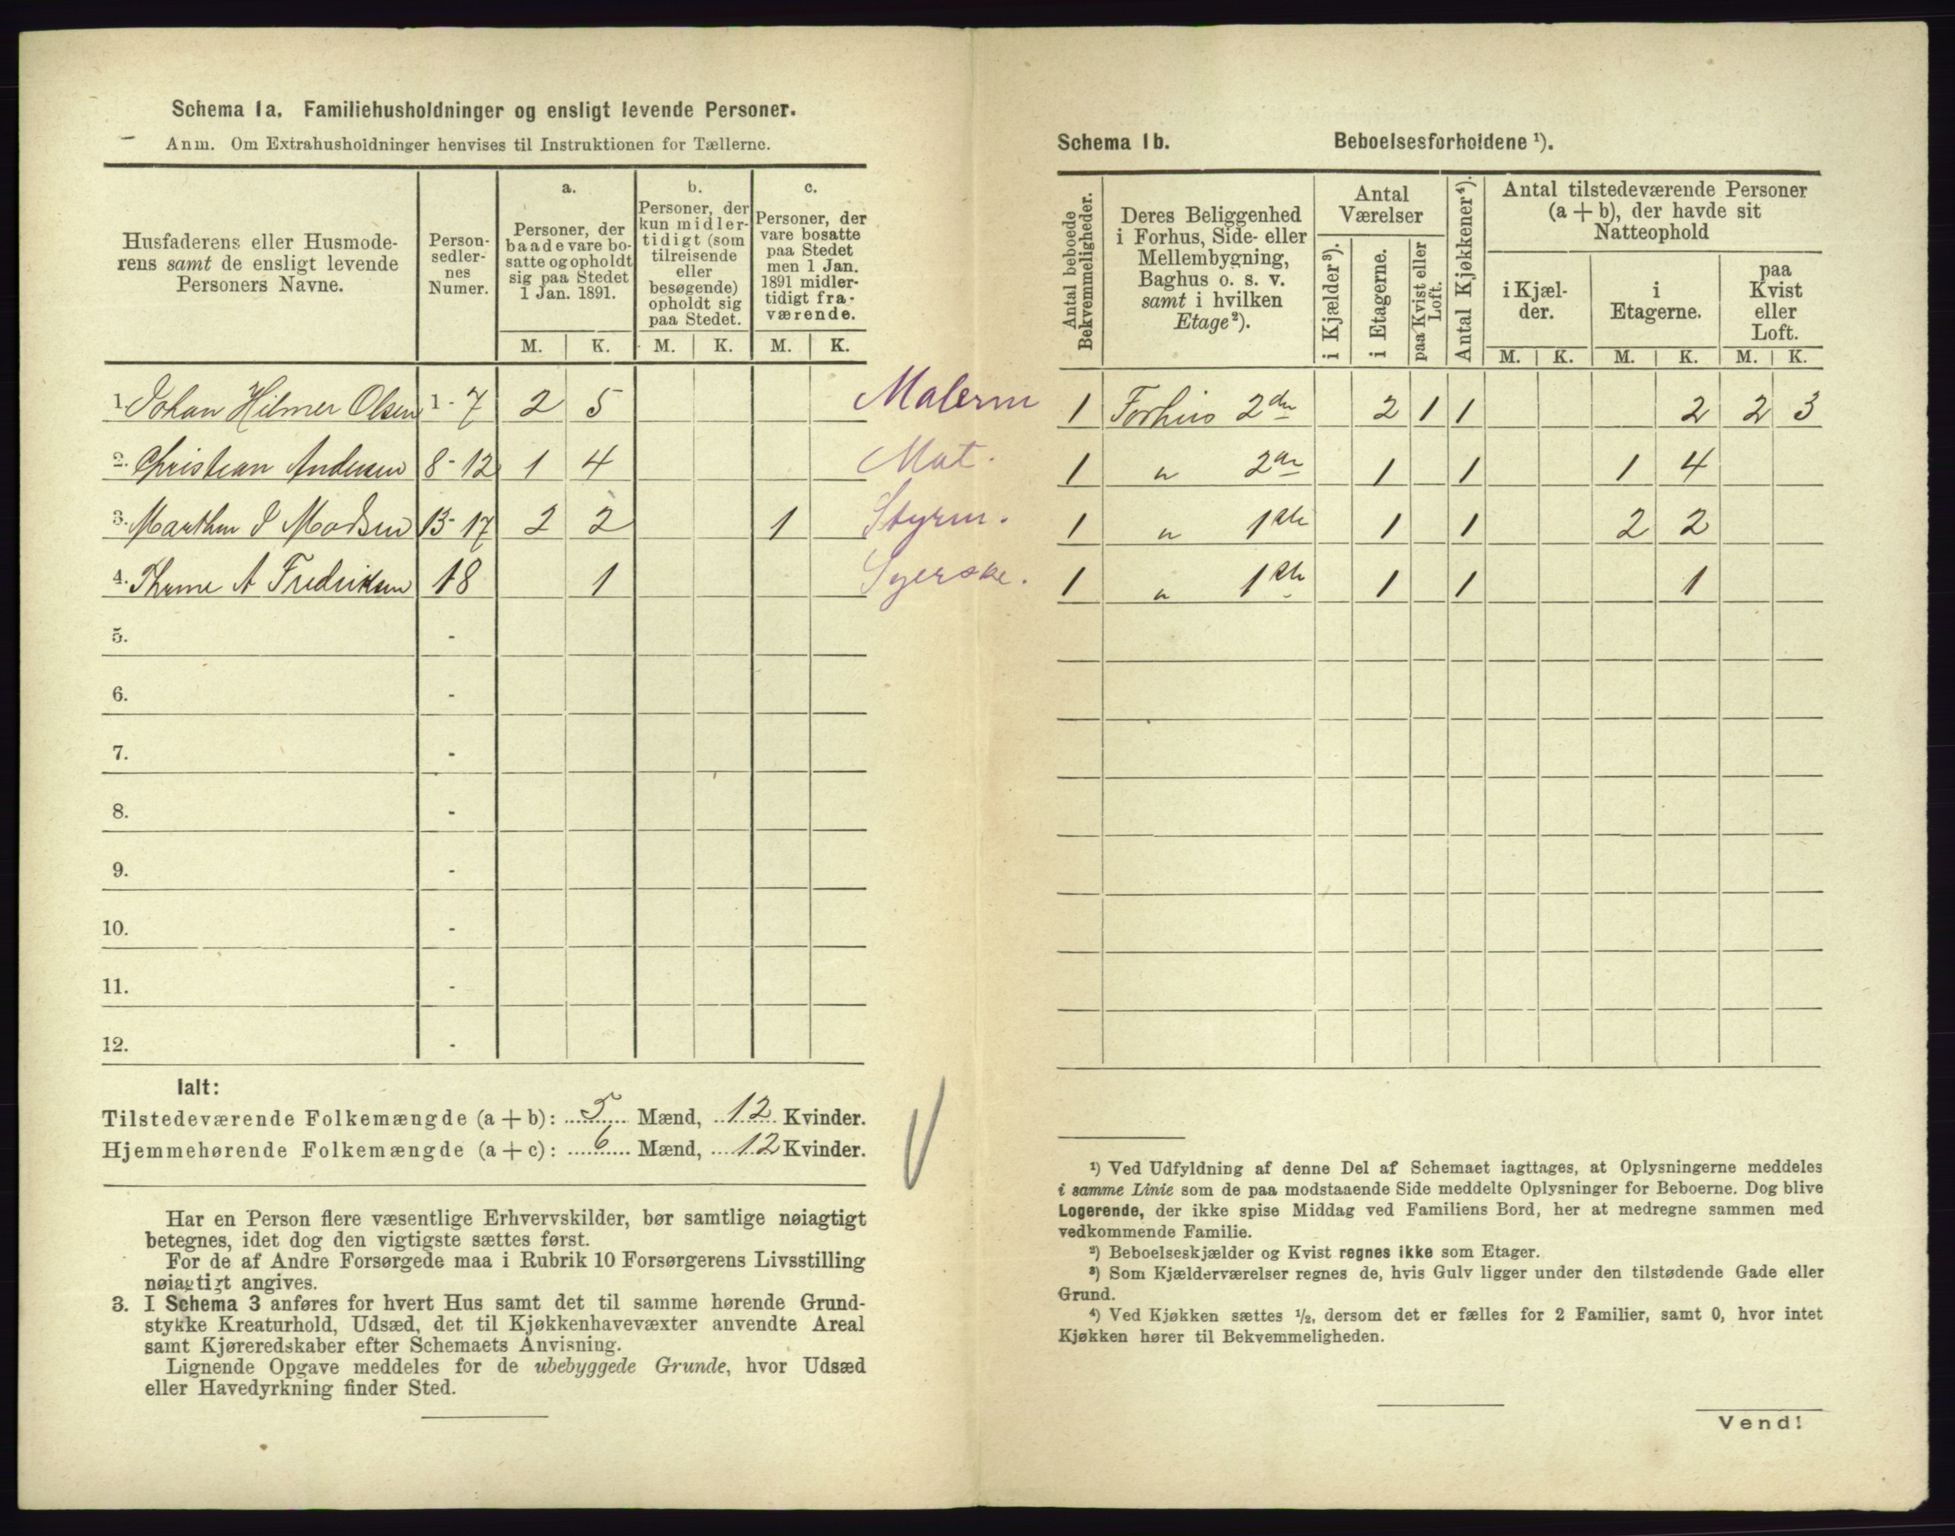 Schema 1a. Familiehusholdninger og ensligt levende Personer.
Anm. Om Extrahusholdninger henvises til Instruktionen for Tællerne.
Husfaderens eller Husmode-
rens samt de ensligt levende
Personers Navne.
Person-
sedler-
nes
Numer.
a.
Personer, der
baade vare bo-
satte og opholdt
sig paa Stedet
1 Jan. 1891.
b.
Personer, der
kun midler-
tidigt (som
tilreisende
eller
besøgende)
opholdt sig
paa Stedet.
c.
Personer, der
vare bosatte
paa Stedet
men 1 Jan.
1891 midler-
tidigt fra-
værende.
M. K. M. K. M. K.
1. Johan Hilmer Olsen 1 - 7 2 5 Malerm
2. Christian Andersen 8 - 12 1 4 Mat.
3. Marthin I Madsen 13 - 17 2 2 1 Styrm.
4. A Fredriksen 18 1 Syerske.
5. -
6. -
7. -
8. -
9. -
10. -
11. -
12. -
Ialt:
Tilstedeværende Folkemængde (a + b): 5 Mænd, 12 Kvinder.
Hjemmehørende Folkemængde (a + c): 6 Mænd, 12 Kvinder.
Har en Person flere væsentlige Erhvervskilder, bør samtlige nøiagtigt
betegnes, idet dog den vigtigste sættes først.
For de af Andre Forsørgede maa i Rubrik 10 Forsørgerens Livsstilling
nøiagtigt angives.
3. I Schema 3 anføres for hvert Hus samt det til samme hørende Grund-
stykke Kreaturhold, Udsæd, det til Kjøkkenhavevæxter anvendte Areal
samt Kjøreredskaber efter Schemaets Anvisning.
Lignende Opgave meddeles for de ubebyggede Grunde, hvor Udsæd
eller Havedyrkning finder Sted.
Schema 1b. Beboelsesforholdene ¹).
Antal beboede
Bekvemmeligheder.
Deres Beliggenhed
i Forhus, Side- eller
Mellembygning,
Baghus o. s. v.
samt i hvilken
Etage²).
Antal
Værelser
i Kjælder³).
i Etagerne.
paa Kvist eller
Loft.
Antal Kjøkkener⁴).
Antal tilstedeværende Personer
(a + b), der havde sit
Natteophold
i Kjæl-
der.
i
Etagerne.
paa
Kvist
eller
Loft.
M. K. M. K. M. K.
1 Forhus 2den 2 1 1 2 2 3
1 " 2den 1 1 1 4
1 " 1ste 1 1 2 2
1 " 1ste 1 1 1
¹) Ved Udfyldning af denne Del af Schemaet iagttages, at Oplysningerne meddeles
i samme Linie som de paa modstaaende Side meddelte Oplysninger for Beboerne. Dog blive
Logerende, der ikke spise Middag ved Familiens Bord, her at medregne sammen med
vedkommende Familie.
²) Beboelseskjælder og Kvist regnes ikke som Etager.
³) Som Kjælderværelser regnes de, hvis Gulv ligger under den tilstødende Gade eller
Grund.
⁴) Ved Kjøkken sættes ½, dersom det er fælles for 2 Familier, samt 0, hvor intet
Kjøkken hører til Bekvemmeligheden.
Vend!